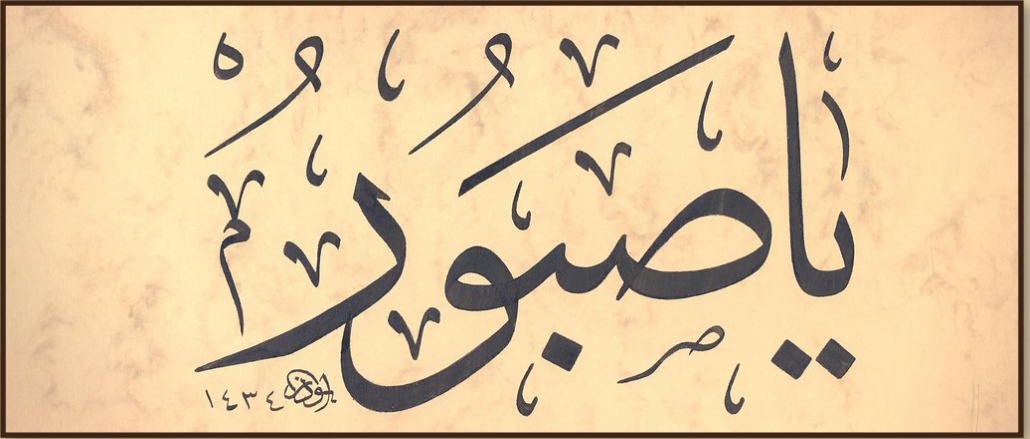 يَا صَبُورُ
١٤٣٤